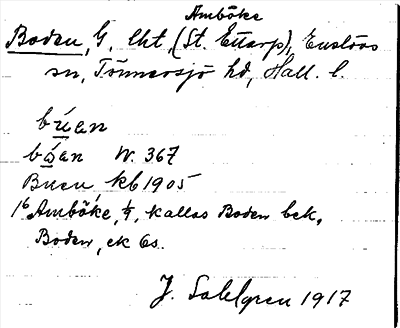 Amböke
Boden, G, lht, (St. Ettarp), Enslövs
sn, Tönnersjö hd, Hall. l.
búen
båen W. 367
Buen kb 1905
1/6 Amböke, kallas Boden bek.
Boden, ek 60.
J. Sahlgren 1917